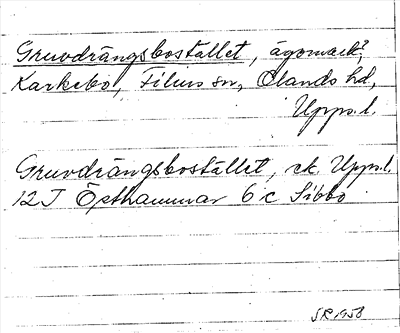 Gruvdrängsbostället, ägomark?,
Karkebo, Films sn, Olands hd,
Upps.l.
Gruvdrängsbostället, ek. Upps.l.
12 I Östhammar 6 c Sibbo
SR 1958